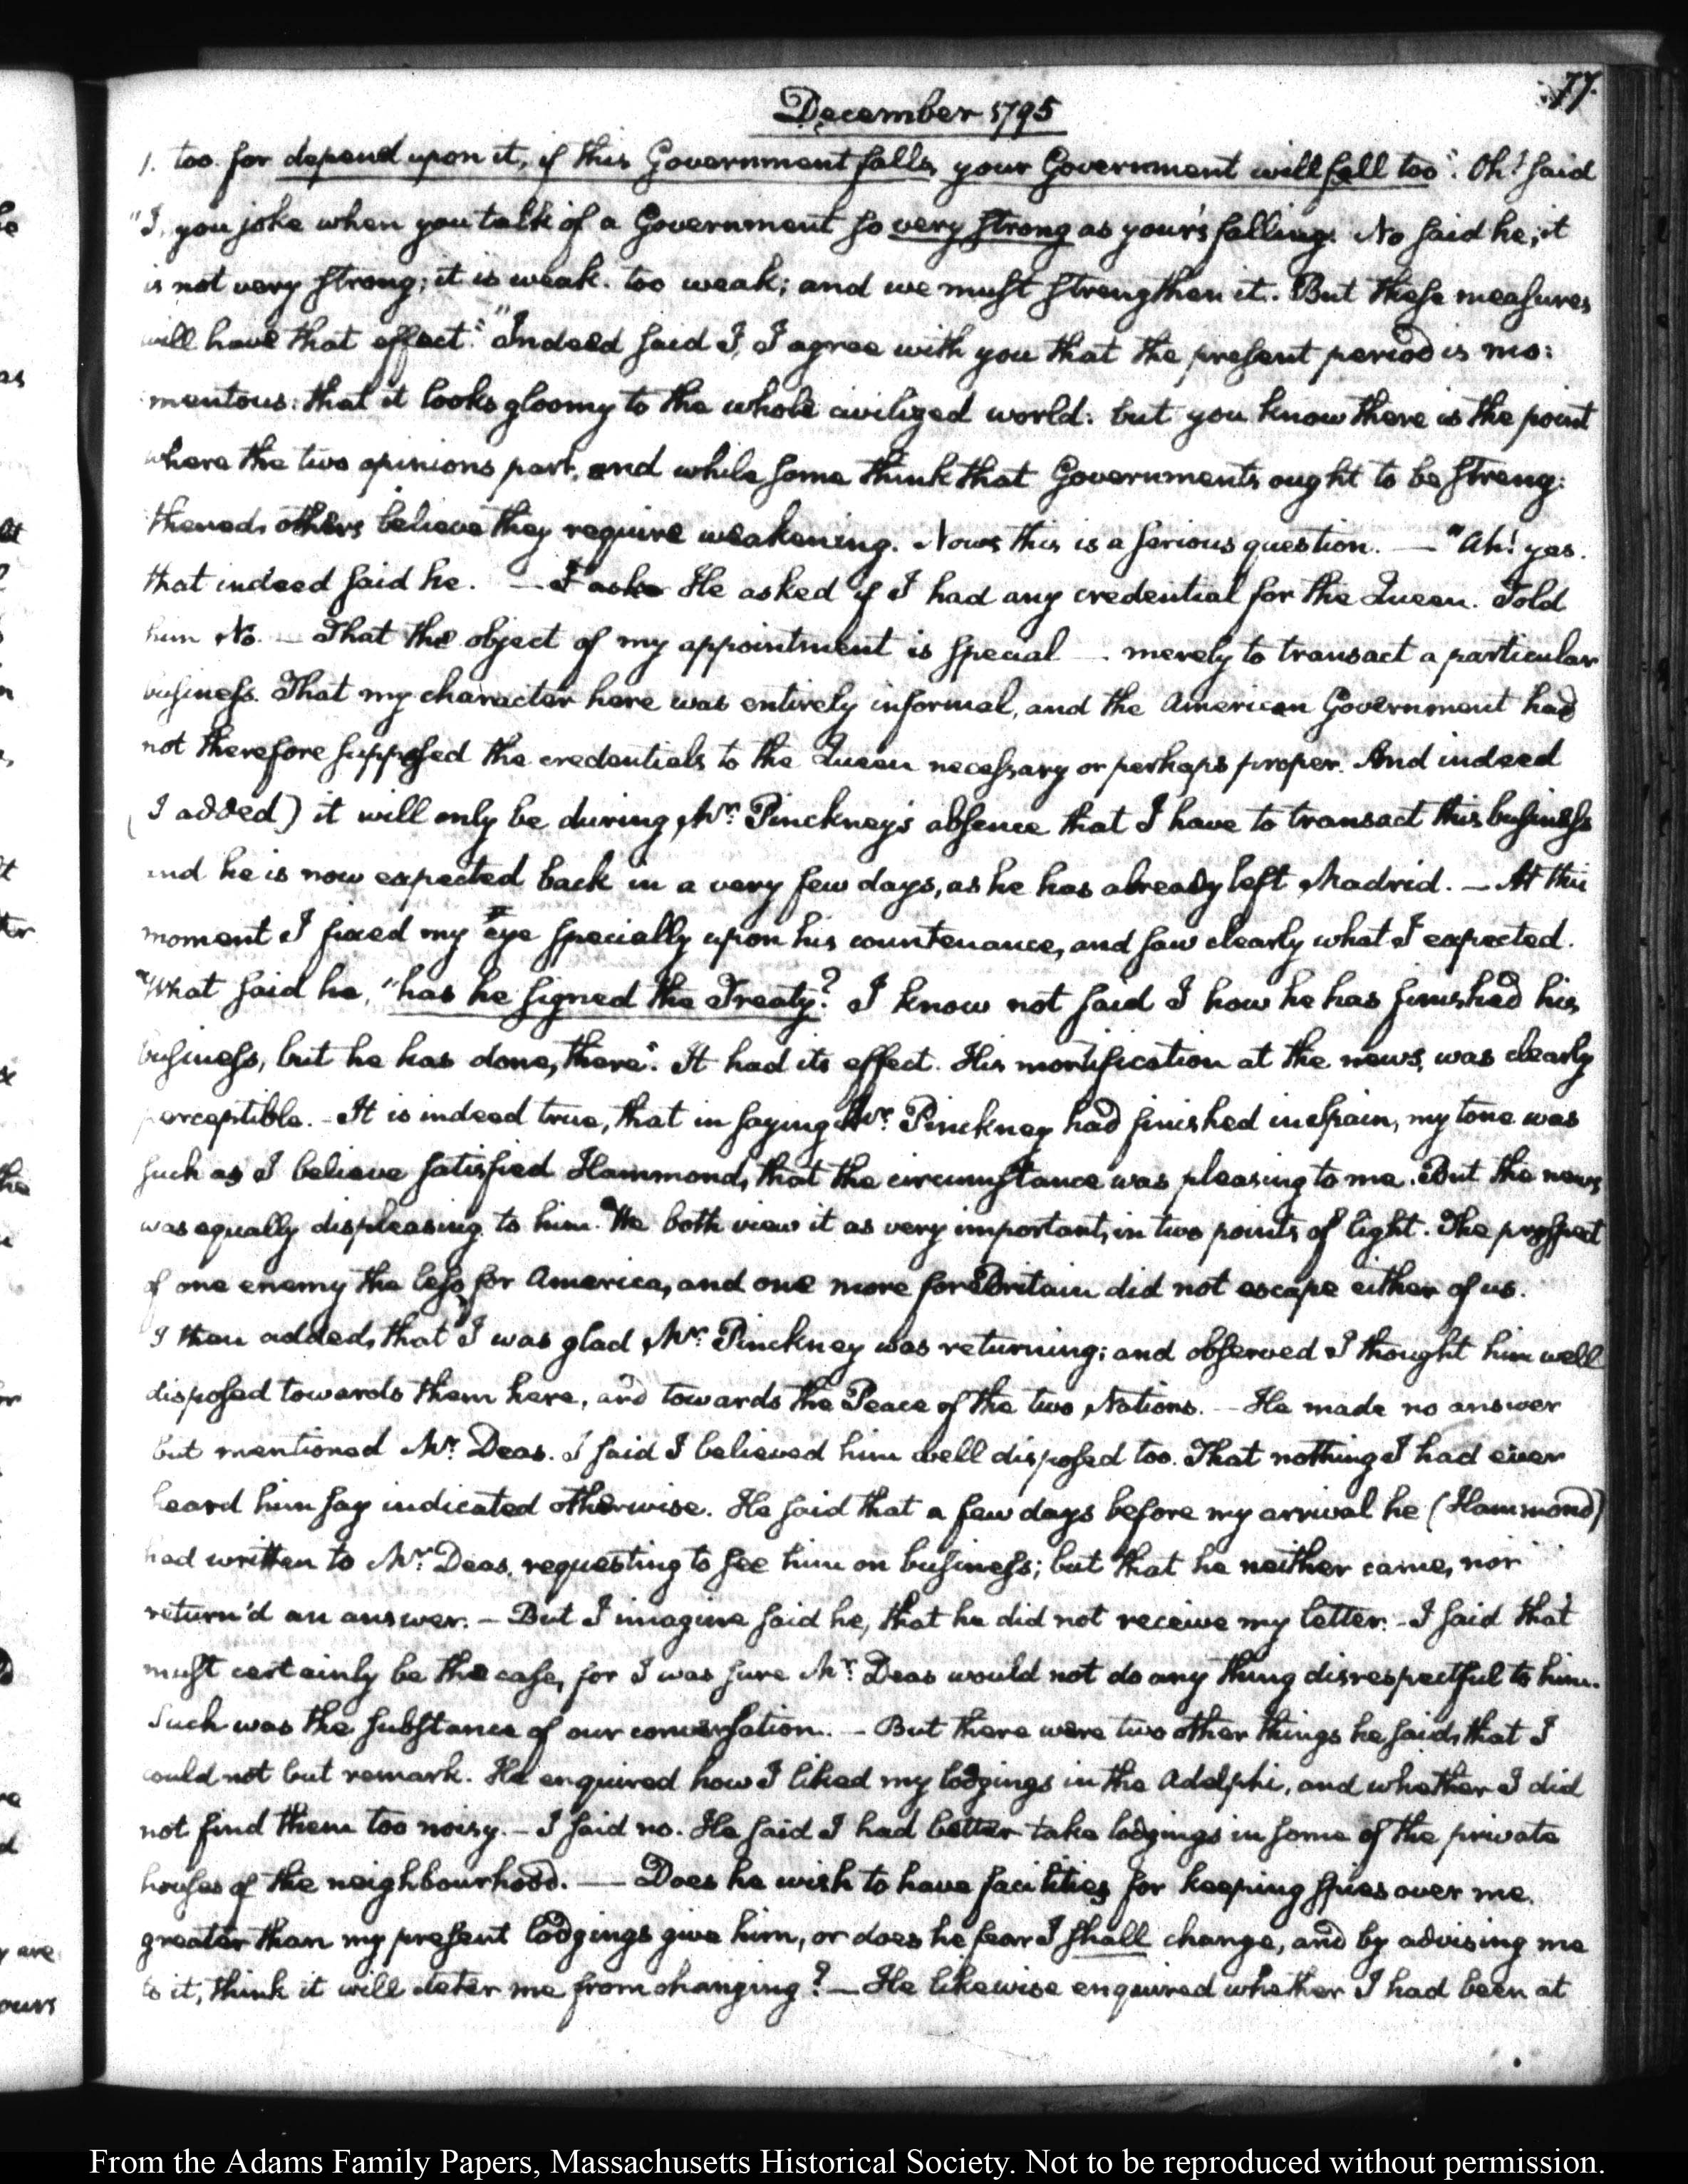 77.
December 1795
1. too. for depend upon it, if this Government falls, your Government will fall too". Oh! said
"I, you joke when you talk of a Government so very strong as your's falling. No said he; it
is not very strong; it is weak. too weak; and we must strengthen it. But these measures
will have that effect." "Indeed said I, I agree with you that the present period is mo:
mentous: that it looks gloomy to the whole civilized world: but you know there is the point
where the two opinions part, and while some think that Governments ought to be streng:
thened, others believe they require weakening. Now this is a serious question. — "Ah! yes.
that indeed said he. — I aske He asked if I had any credential for the Queen. Told
him No. — That the object of my appointment is special — . merely to transact a particular
business. That my character here was entirely informal, and the American Government had
not therefore supposed the credentials to the Queen necessary or perhaps proper. And indeed
(I added) it will only be during Mr. Pinckney's absence that I have to transact this business
and he is now expected back in a very few days, as he has already left Madrid. — At this
moment I fixed my eye specially upon his countenance, and saw clearly what I expected.
"What said he, "has he signed the Treaty? I know not said I how he has finished his
business, but he has done, there". It had its effect. His mortification at the news, was clearly
perceptible. - It is indeed true, that in saying Mr. Pinckney had finished in Spain, my tone was
such as I believe satisfied Hammond, that the circumstance was pleasing to me. But the news
was equally displeasing to him. We both view it as very important, in two points of light. The prospect
of one enemy the less for America, and one more for Britain did not escape either of us.
I then added, that I was glad Mr. Pinckney was returning; and observed I thought him well
disposed towards them here, and towards the Peace of the two Nations. — He made no answer
but mentioned Mr. Deas. I said I believed him well disposed too. That nothing I had ever
heard him say indicated otherwise. He said that a few days before my arrival he (Hammond)
had written to Mr. Deas, requesting to see him on business; but that he neither came, nor
return'd an answer. — But I imagine said he, that he did not receive my letter. - I said that
must certainly be the case, for I was sure Mr. Deas would not do any thing disrespectful to him.
Such was the substance of our conversation. — But there were two other things he said, that I
could not but remark. He enquired how I liked my lodgings in the Adelphi, and whether I did
not find them too noisy. — I said no. He said I had better take lodgings in some of the private
houses of the neighbourhood. — Does he wish to have facilities for keeping spies over me,
greater than my present lodgings give him, or does he fear I shall change, and by advising me
to it, think it will deter me from changing? — He likewise enquired whether I had been at
From the Adams Family Papers, Massachusetts Historical Society. Not to be reproduced without permission.